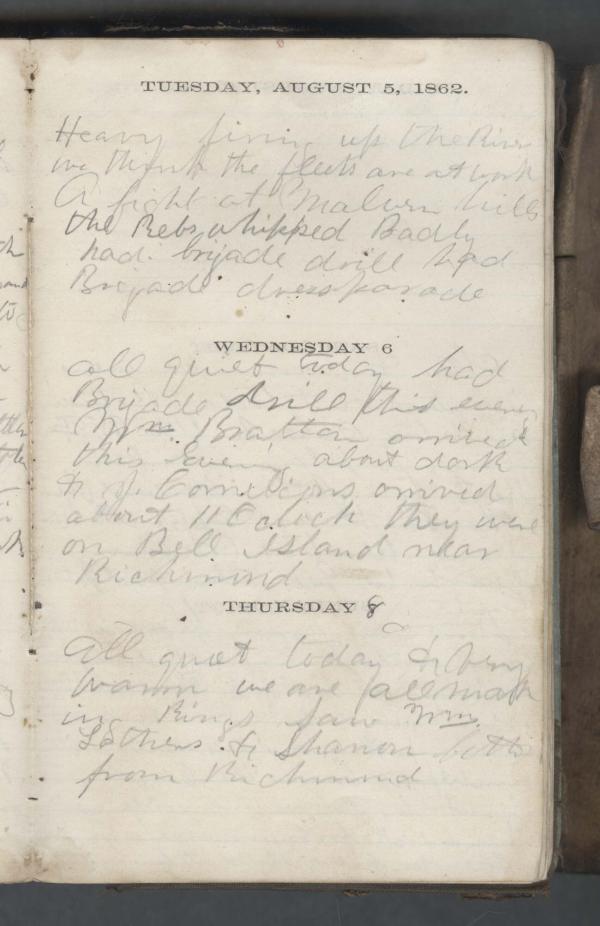 TUESDAY, AUGUST 5, 1862.
Heavy firing up the River
we think the fleets are at work
A fight at Malvern hills
the Rebs whipped Badly
had brijade drill had
Brijade dressparade
WEDNESDAY 6
all quiet today had
Brijade drill this evening
Wm Bratton arrived
this Evening about dark
& J. arrived
about 11 Oclock they were
on Bell Island near
Richmind
THURSDAY 8
All quiet today & very
warm we are all mak
ing Rings saw Wm.
& Shanon both
from Richmind